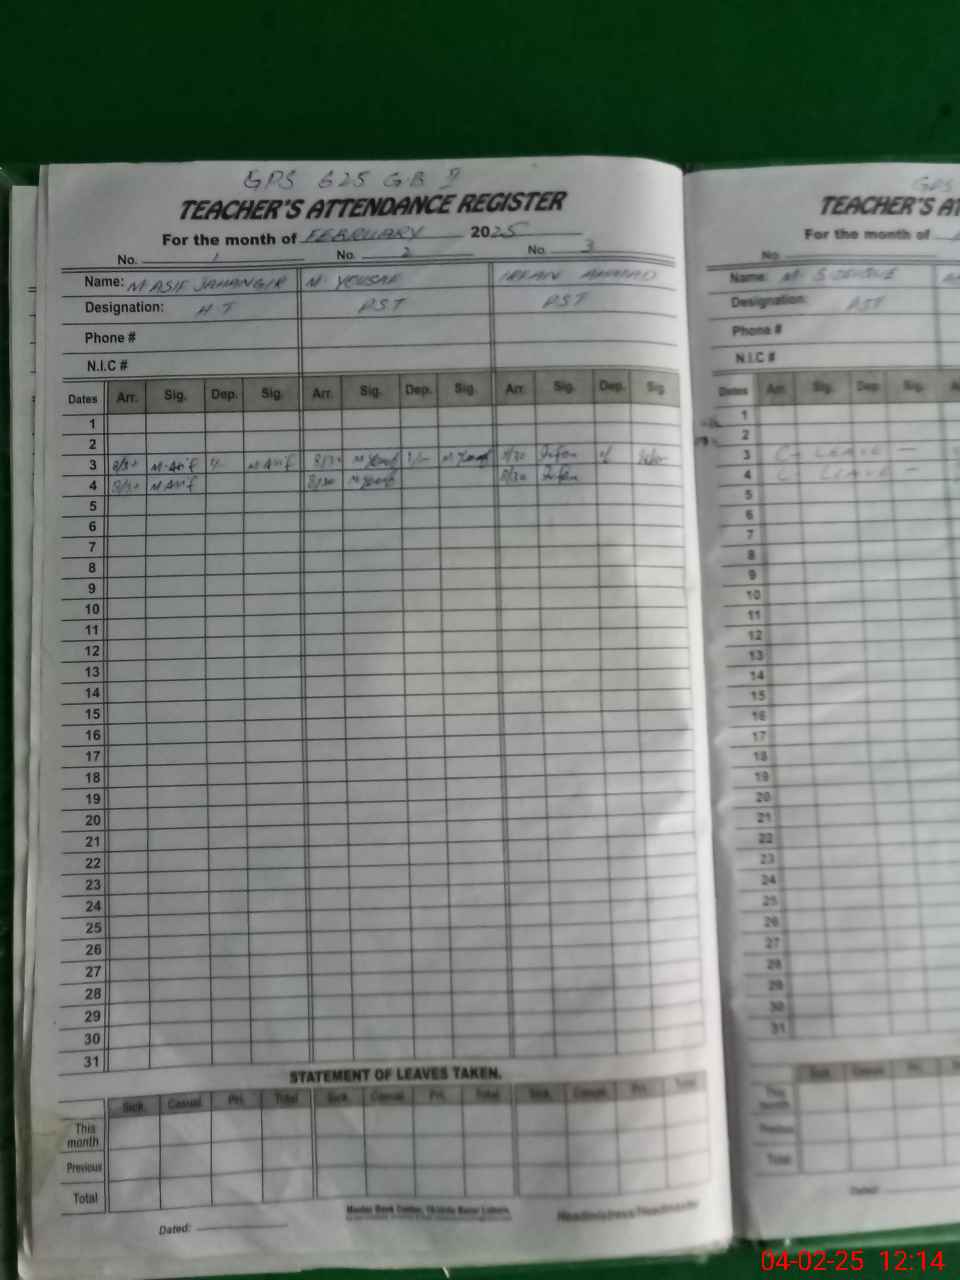 GPS 625 GB
TEACHER'S ATTENDANCE REGISTER
For the month of FEBRUARY 2025
No. 1 No. 2 No. 3
Name: M ASIF JAHANGIR M. YOUSAF IRFAN AHMAD
Designation: H T PST PST
Phone #
N.I.C #
Dates Arr. Sig. Dep. Sig. Arr. Sig. Dep. Sig. Arr. Sig. Dep. Sig.
1
2
3 8/30 M Asif M Asif 8/30 M Yousaf M Yousaf 8/30 Irfan
4 8/30 M Asif 8/30 M Yousaf 8/30 Irfan
5
6
7
8
9
10
11
12
13
14
15
16
17
18
19
20
21
22
23
24
25
26
27
28
29
30
31
STATEMENT OF LEAVES TAKEN.
Sick. Casual. Pri. Total Sick. Casual. Pri. Total Sick. Casual. Pri. Total
This month
Previous
Total
Dated:
Headmistress/Headmaster
GPS
TEACHER'S AT
For the month of
No.
Name: M.
Designation: PST
Phone #
N.I.C #
Dates Arr. Sig. Dep. Sig.
1
2
3 C- LEAVE -
4 C- LEAVE -
5
6
7
8
9
10
11
12
13
14
15
16
17
18
19
20
21
22
23
24
25
26
27
28
29
30
31
Sick. Casual. Pri.
This month
Previous
Total
Dated:
04-02-25 12:14